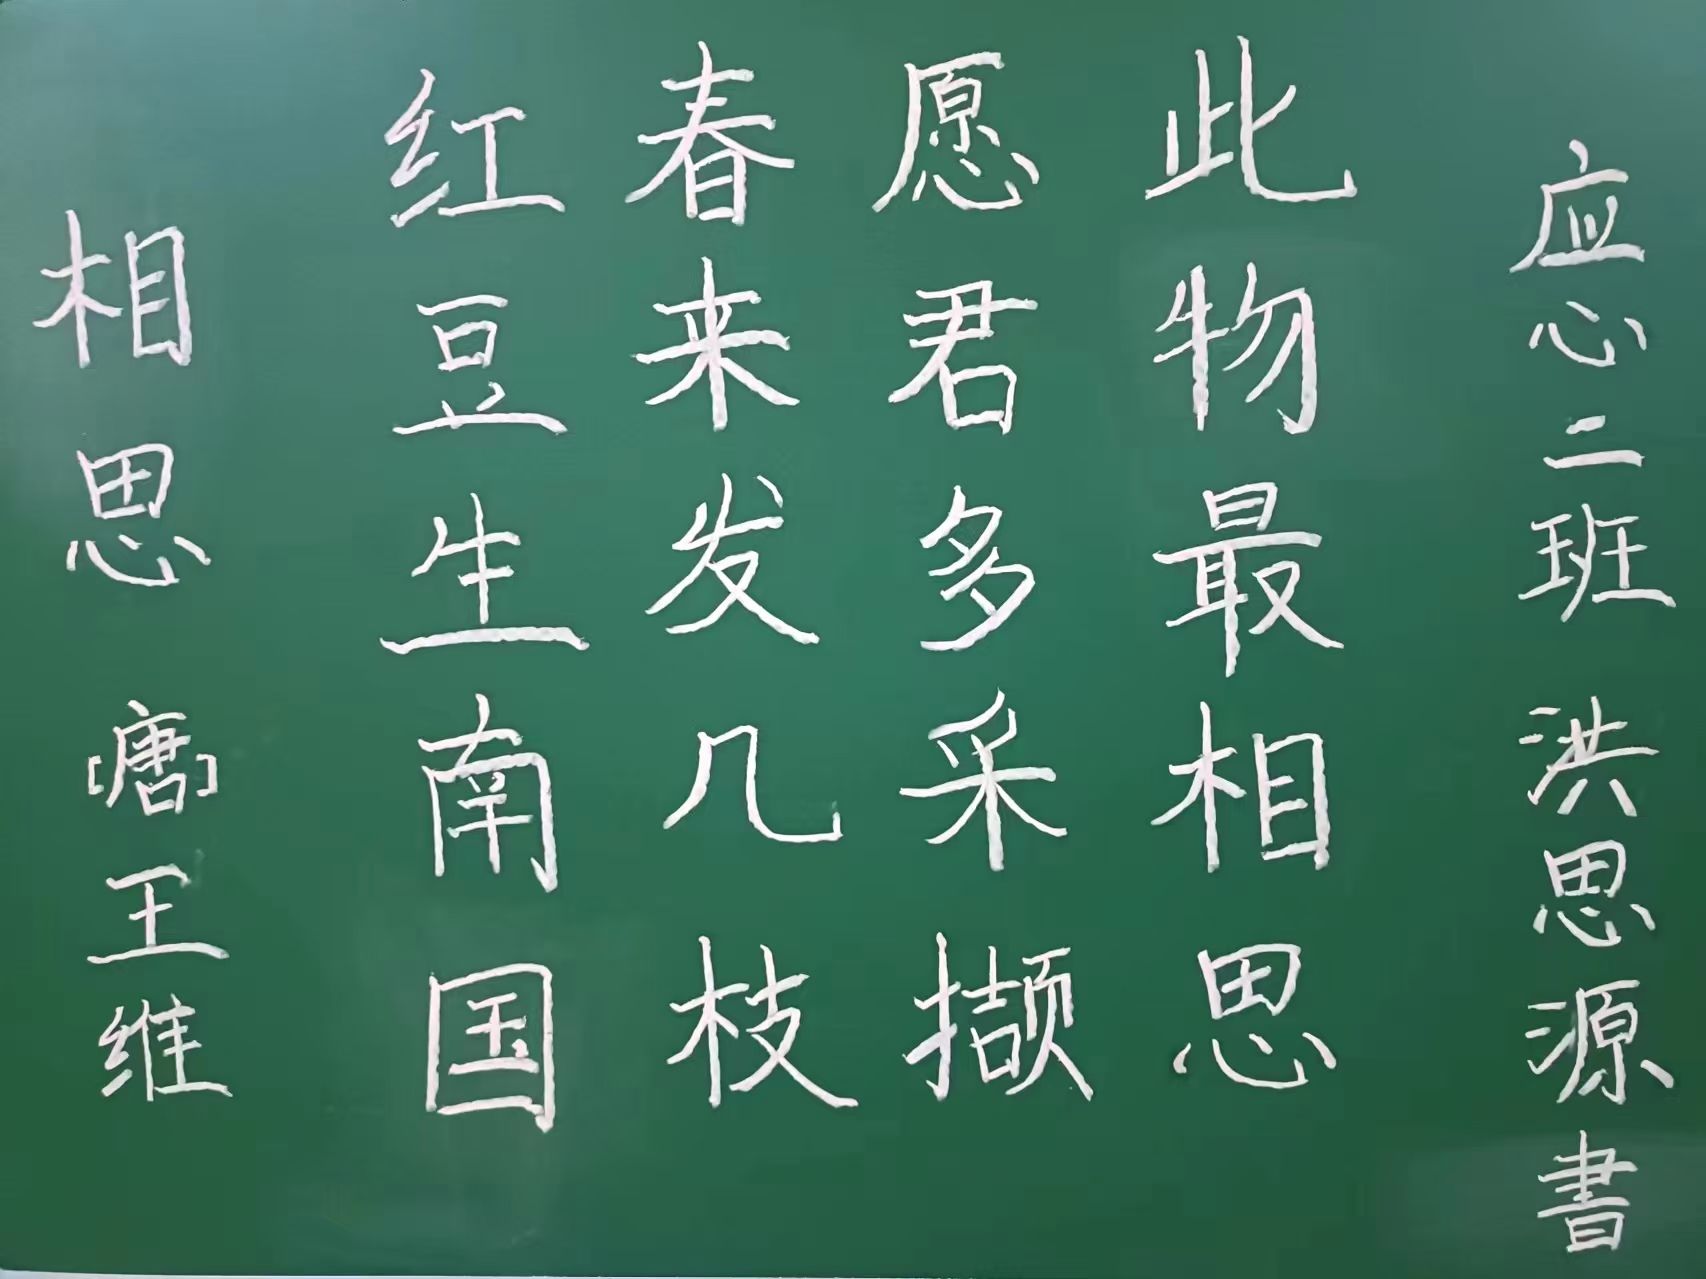 相思
[唐]王维
红豆生南国
春来发几枝
愿君多采撷
此物最相思
应心二班 洪思源書